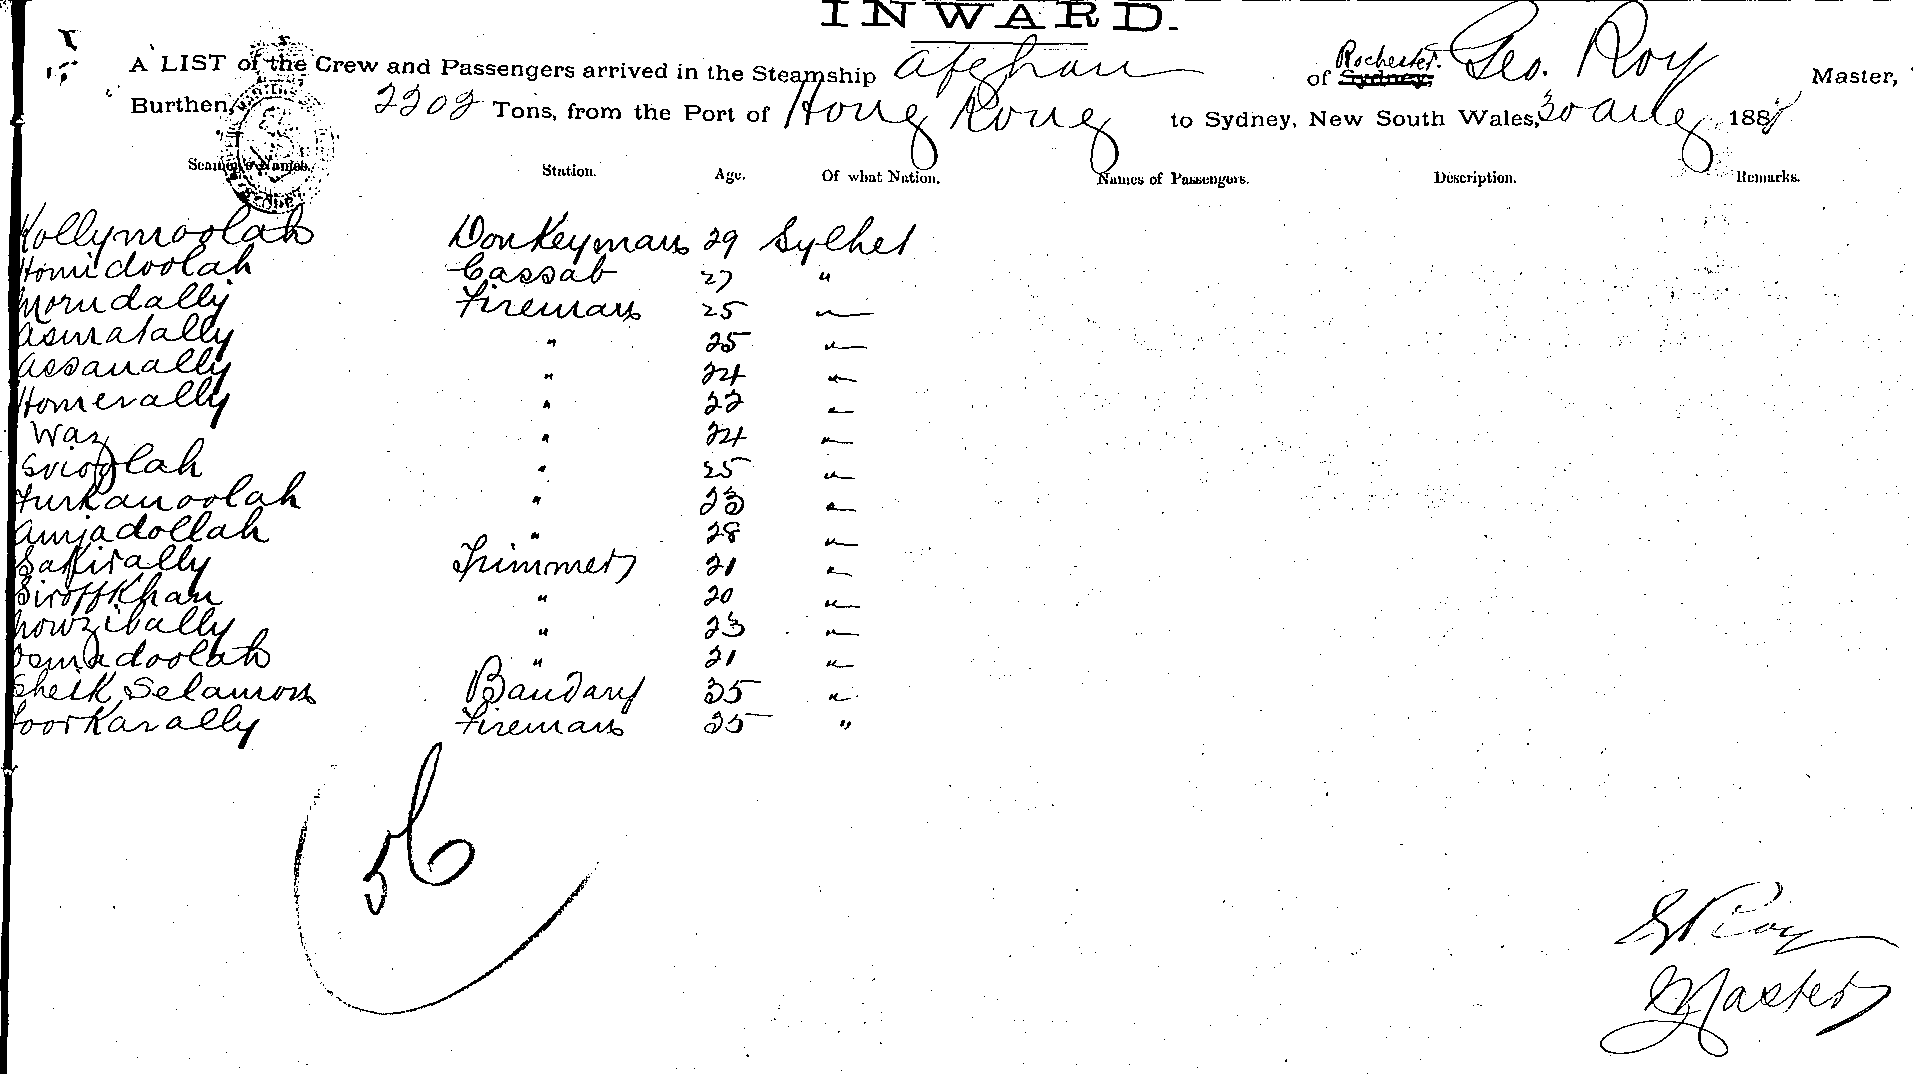 INWARD.
A LIST of the Crew and Passengers arrived in the Steamship Afghan of Rochester. Sydney, Geo. Roy Master,
Burthen, 2202 Tons, from the Port of Hong Kong to Sydney, New South Wales, 30 Aug 188
Seamen's Names. Station. Age. Of what Nation. Names of Passengers. Description. Remarks.
Kollymoolah Donkeyman 29 Sylhet
Homidoolah Cassab 27 "
Morndally Fireman 25 "
Asmatally " 25 "
Assanally " 24 "
Homerally " 22 "
Waz " 24 "
" 25 "
Furkanoolah " 23 "
Amjadollah " 28 "
Sakirally Trimmer 21 "
Siroffkhan " 20 "
" 23 "
Osmadoolah " 21 "
Sheik Selamon Bandary 35 "
Fireman 25 "
56
G Roy
Master